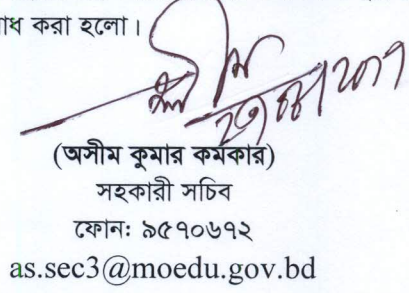 াধ করা হলো।
(অসীম কুমার কর্মকার)
সহকারী সচিব
ফোনঃ ৯৫৭০৬৭২
as.sec3@moedu.gov.bd